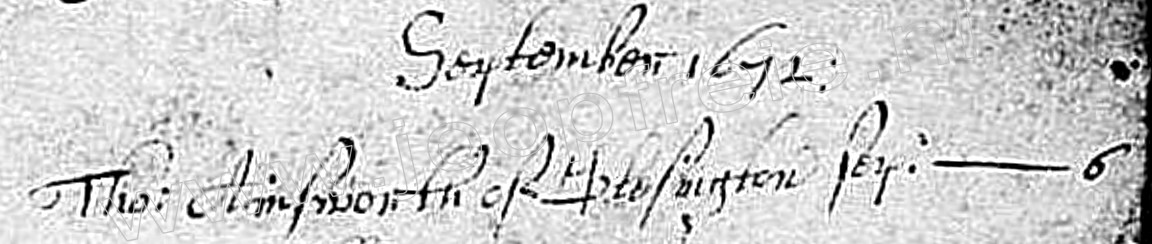 September 1672:
Tho: Ainsworth of Plesington sep: — 6